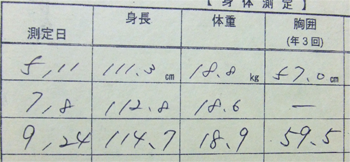 【 身 体 測 定 】
測定日 身長 体重 胸囲
(年3回)
5,11 111.3 cm 18.8 kg 57.0 cm
7,8 112.8 18.6 —
9,24 114.7 18.9 59.5